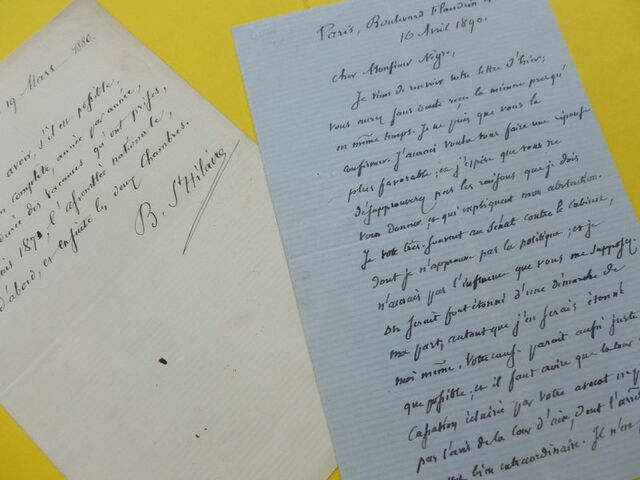 19 Mars 1880.
avoir, s'il est possible,
complète, année par année,
durée des vacances qu'ont prises,
1870, l'assemblée nationale,
d'abord, et ensuite les deux Chambres.
B. St Hilaire
Paris, Boulevard Flandrin
16 Avril 1890.
Cher Monsieur Nègre,
Je viens de recevoir votre lettre d'hier;
vous aurez sans doute reçu la mienne presqu'
en même temps. Je ne puis que vous la
confirmer. J'aurais voulu vous faire une réponse
plus favorable; et j'espère que vous ne
désapprouverez pas les raisons que je dois
vous donner, et qui expliquent mon abstention.
Je vote très-souvent au Sénat contre le cabinet,
dont je n'approuve pas la politique; et je
n'aurais pas l'influence que vous me supposez
on serait fort étonné d'une démarche de
ma part, autant que j'en serais étonné
moi même. Votre cause paraît aussi juste
que possible, et il faut croire que la Cour
Cassation éclairée par votre avocat
par l'avis de la Cour d'aix, dont l'arrêt
bien extraordinaire. Je n'en